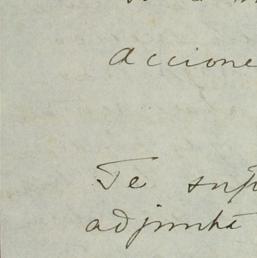 accione
Te sup
adjunta